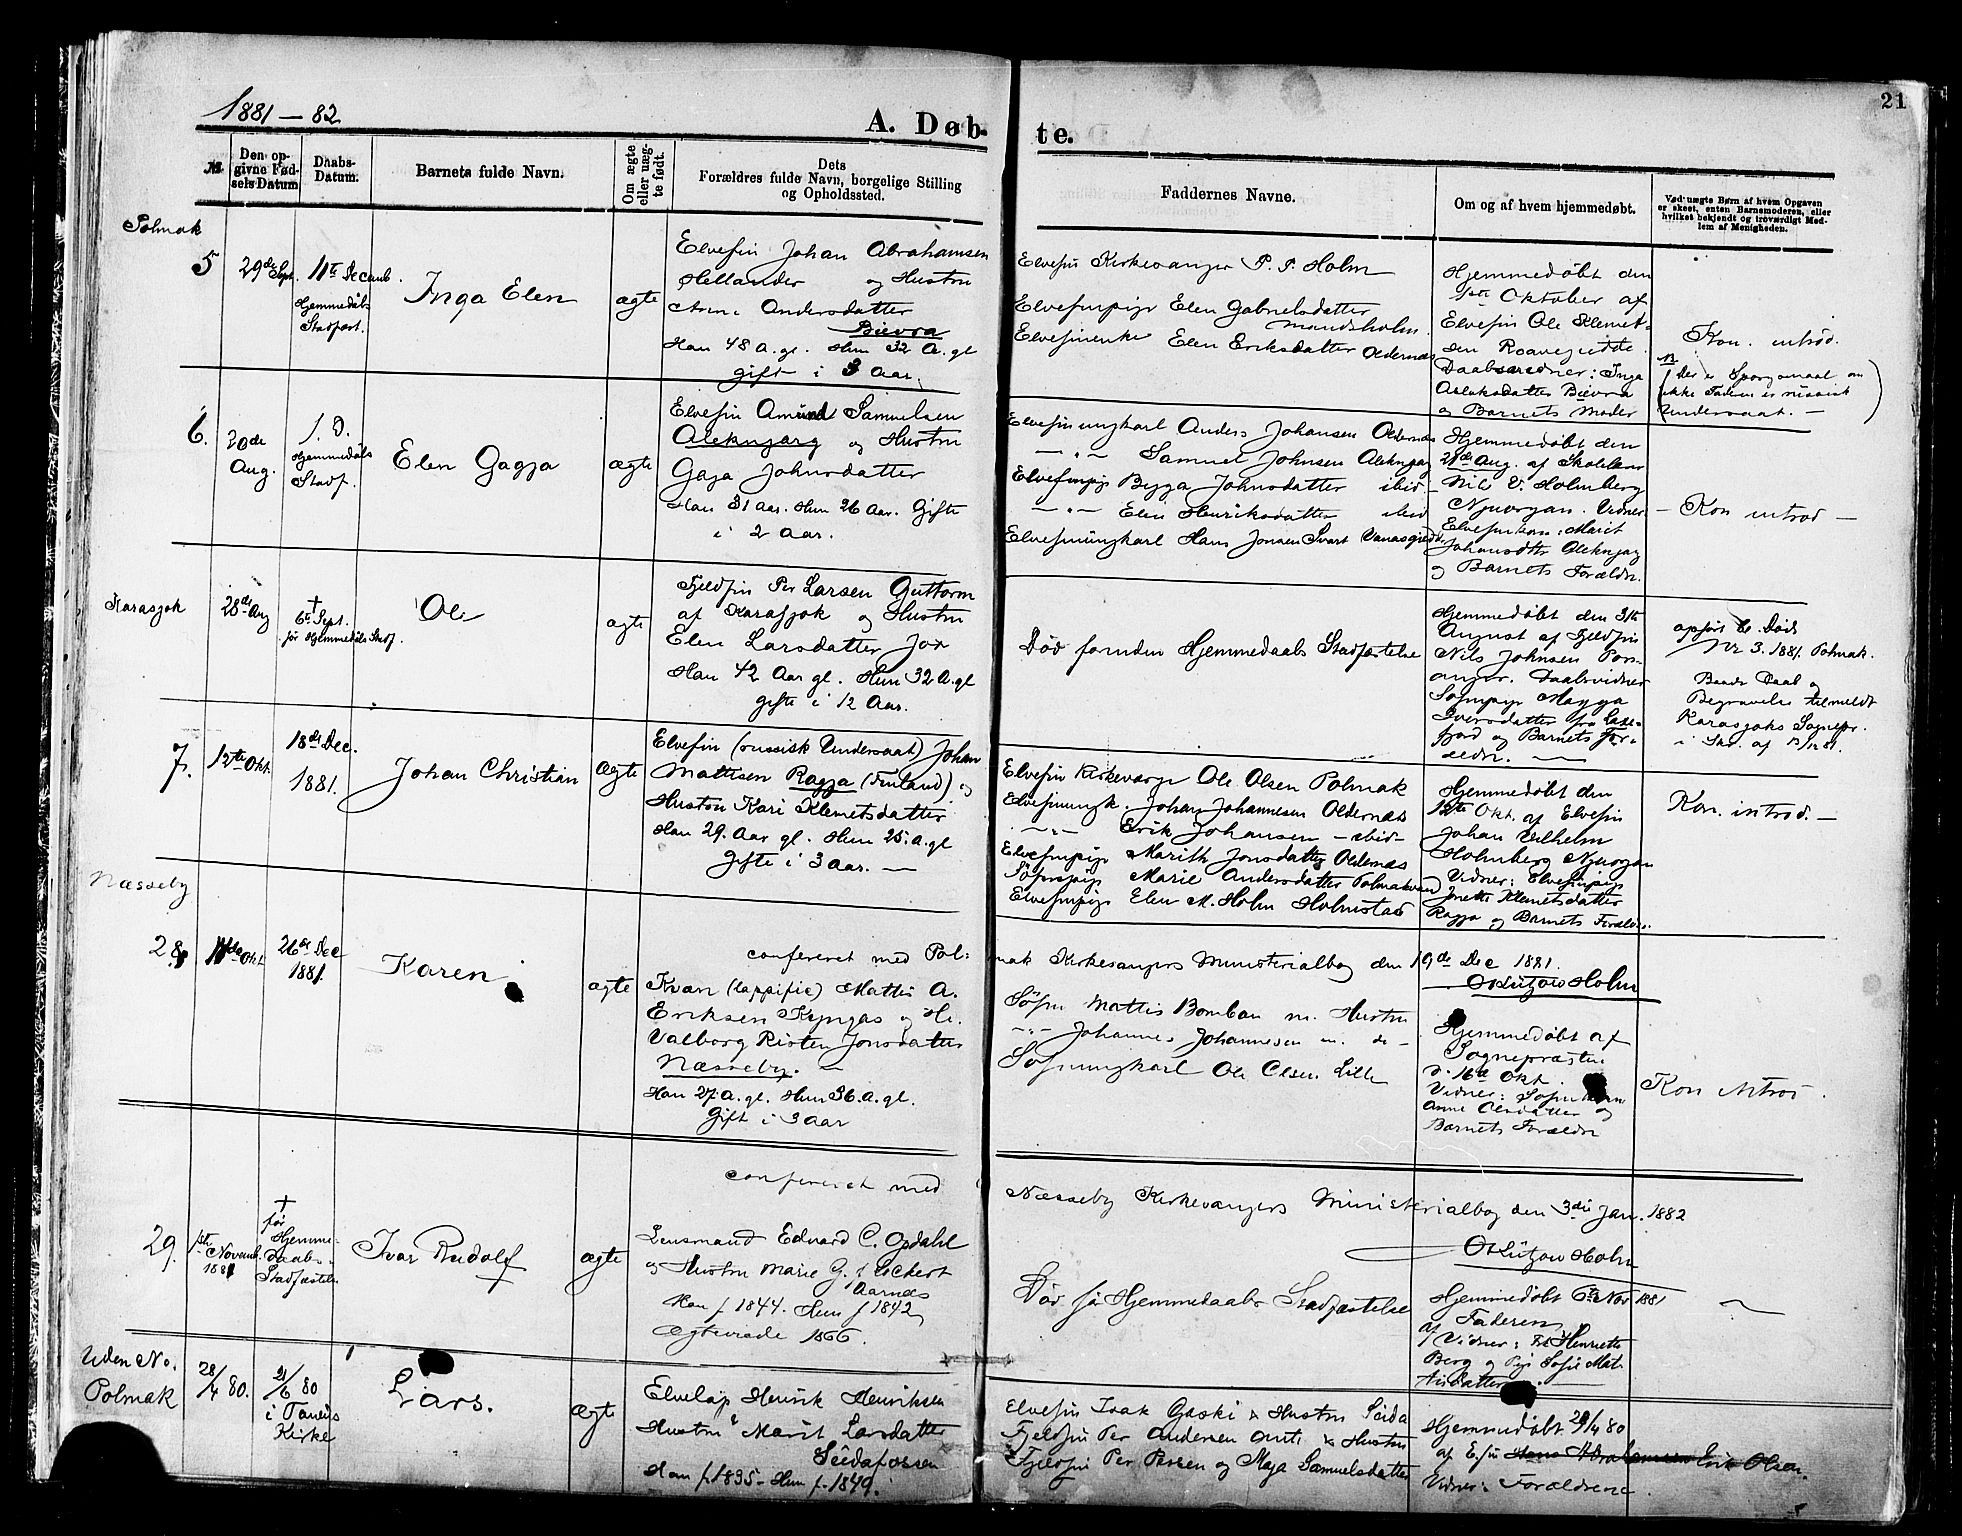 1881 - 82
A. Døb-
te.
21
№
Den op-
givne Fød-
sels Datum
Daabs-
Datum.
Barnets fulde Navn.
Om ægte
eller uæg-
te født.
Dets
Forældres fulde Navn, borgelige Stilling
og Opholdssted.
Faddernes Navne.
Om og af hvem hjemmedøbt.
Ved uægte Børn af hvem Opgaven
er skeet, enten Barnemoderen, eller
hvilket bekjendt og troværdigt Med-
lem af Menigheden.
Polmak
5
29de Sept.
11te Decemb.
Hjemmedåb
Stadfæst.
Inga Elen
ægte
Elvefin Johan Abrahamsen
Hellander og Hustru
Anne Andersdatter
Bievra
Han 48 A. gl. Hun 32 A. gl
gift i 3 Aar.
Elvefin Kirkesanger P. P. Holm
Elvefinpige Elen Gabrielsdatter
Mandsholm
Elvefinenke Elen Eriksdatter Oldernæs
Hjemmedøbt den
1ste Oktober af
Elvefin Ole Klemet-
sen Roavegiedde.
Daabsvidner: Inga
Aslaksdatter Bievra
og Barnets Moder
Kon. introd.
(Der er Spørgsmaal om
ikke Faderen er russisk
Undersaat. -
6.
20de
Aug.
1. D.
Hjemmedåb
Stadf.
Elen Gagja
ægte
Elvefin Amund Samuelsen
Aleknjarg og Hustru
Gaja Johnsdatter
Han 31 Aar. Hun 26 Aar. Gifte
i 2 Aar.
Elvefinungkarl Anders Johansen Oldernæs
- " - Samuel Johnsen Aleknjag
Elvefinpige Bigga Johnsdatter ibid
- " - Elen Henriksdatter ibid
Elvefinungkarl Hans Jonsen Svart
Hjemmedøbt den
28de Aug. af Skolelærer
Nils V. Holmberg
Njuorgan. Vidner
Elvefinkone: Marit
Johansdtr Aleknjag
og Barnets Forældre.
- Kon introd -
Karasjok
28de Aug
†
6te Sept.
før Hjemmedåbs Stadf.
Ole
ægte
Fjeldfin Per Larsen Guttorm
af Karasjok og Hustru
Elen Larsdatter Jox
Han 42 Aar gl. Hun 32 A. gl
gifte i 12 Aar.
Død forinden Hjemmedaabs Stadfæstelse
Hjemmedøbt den 31te
August af Fjeldfin
Nils Johnsen Pors-
anger. Daabsvidner
Søfinpige Magga
Iversdatter fra Laxe-
fjord og Barnets For-
ældre. -
opført C. Døde
Nr 3. 1881. Polmak.
Baade Daab og
Begravelse tilmeldt
Karasjoks Sognepr.
7.
12te Okt.
18de Dec.
1881.
Johan Christian
ægte
Elvefin (russisk Undersaat) Johan
Mathisen Ragja (Finland) og
Hustru Kari Klemetsdatter
Han 29. Aar gl. Hun 25. A. gl
Gifte i 3 Aar. -
Elvefin Kirkeværge Ole Olsen Polmak
Elvefinungk. Johan Johannesen Oldernæs
- " - Erik Johansen - ibid -
Elvefinpige Marith Jonsdatter Oldernæs
Søfinpige Marie Andersdatter Polmakvand
Elvefinpige Elen M. Holm Holmstad
Hjemmedøbt den
12te Okt. af Elvefin
Johan Vilhelm
Holmberg Njuorgan
Vidner: Elvefinpige
Jonette Klemetsdatter
Ragja og Barnets Forældre.
Kon. introd. -
Næsseby
28.
11te Okt
26de Dec
1881.
Karen
ægte
confereret med Pol-
mak Kirkesangers Ministerialbog den 19de Dec 1881.
O Lützow Holm
Kvæn (lappific) Mattis A.
Eriksen Kyngas og H.
Valborg Risten Jonsdatter
Næsseby. -
Han 27. A. gl. Hun 36. A. gl.
Gift i 3 Aar
Søfin Mattis Bomban m. Hustru
- " - Johannes Johannesen m. do -
Søfinungkarl Ole Olsen Lille
Hjemmedøbt af
Sognepræsten
d. 16de Okt.
Vidner: Søfinkone
Anne Olesdatter og
Barnets Forældre
Kon introd.
29.
1ste
Novemb.
1881
†
før
Hjemme-
daabs-
Stadfæstelse
Ivar Rudolf
ægte
confereret med
Næsseby Kirkesangers Ministerialbog den 3die Jan. 1882
O Lützow Holm
Lensmand Edvard C. Opdahl
og Hustru Marie G. f. Eckert
Aarnæs
Han f 1844. Hun f 1842,
Ægteviede 1866.
Død før Hjemmedaabs Stadfæstelse
Hjemmedøbt 6te Nov 1881
af Faderen.
Vidner: Henriette
Berg og Pige Sofie Mat-
tisdatter.
Uden No.
Polmak
28/4 80.
21/6 80
i Tanens
Kirke
Lars.
ægte
Elvelap Henrik Henriksen
Hustru Marit Larsdatter
Seidafossen
Han f. 1835 - Hun f. 1849.
Elvefin Isak Gaski & Hustru Seida
Fjeldfin Per Andersen Anti & Hustru
Fjeldfin Per Persen og Maja Samuelsdatter
Hjemmedøbt 29/4 80
af E.fin Hans Abrahamsen Erik Olsen.
Vidner: Forældrene.